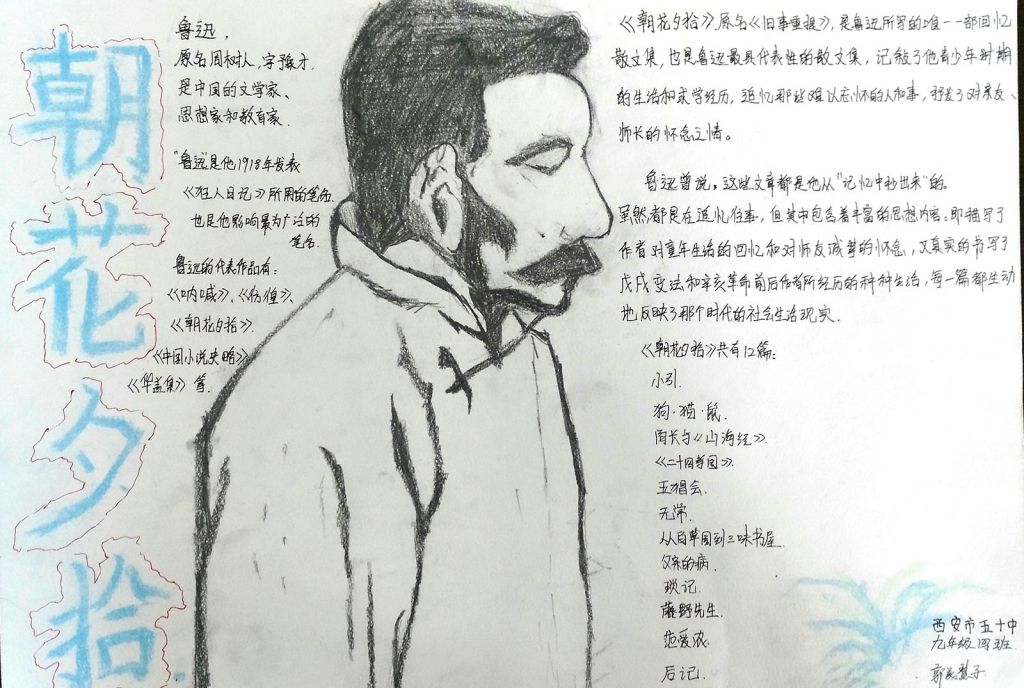 朝花夕拾
鲁迅，
原名周树人，字豫才，
是中国的文学家、
思想家和教育家.
"鲁迅"是他1918年发表
《狂人日记》所用的笔名.
也是他影响最为广泛的
笔名.
鲁迅的代表作品有：
《呐喊》、《彷徨》、
《朝花夕拾》.
《中国小说史略》
《华盖集》等.
《朝花夕拾》原名《旧事重提》，是鲁迅所写的唯一一部回忆
散文集，也是鲁迅最具代表性的散文集，记叙了他青少年时期
的生活和求学经历，追忆那些难以忘怀的人和事，抒发了对亲友、
师长的怀念之情。
鲁迅曾说，这些文章都是他从"记忆中抄出来"的。
虽然都是在追忆往事，但其中包含着丰富的思想内容：即描写了
作者对童年生活的回忆和对师友诚挚的怀念，又真实的书写了
戊戌变法和辛亥革命前后作者所经历的种种生活，每一篇都生动
地反映了那个时代的社会生活现实.
《朝花夕拾》共有12篇：
小引.
狗·猫·鼠.
阿长与《山海经》.
《二十四孝图》.
五猖会.
无常.
从百草园到三味书屋.
父亲的病.
琐记.
藤野先生.
范爱农.
后记.
西安市五十中
九年级四班